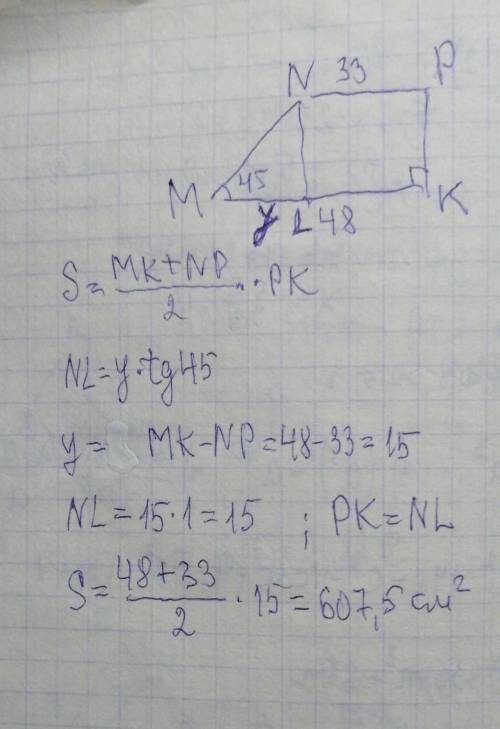 N 33 P
M 45 y L 48 K
S = (MK+NP)/2 · PK
NL = y·tg45
y = MK-NP=48-33=15
NL = 15·1=15 ; PK=NL
S = (48+33)/2 · 15 = 607,5 см²